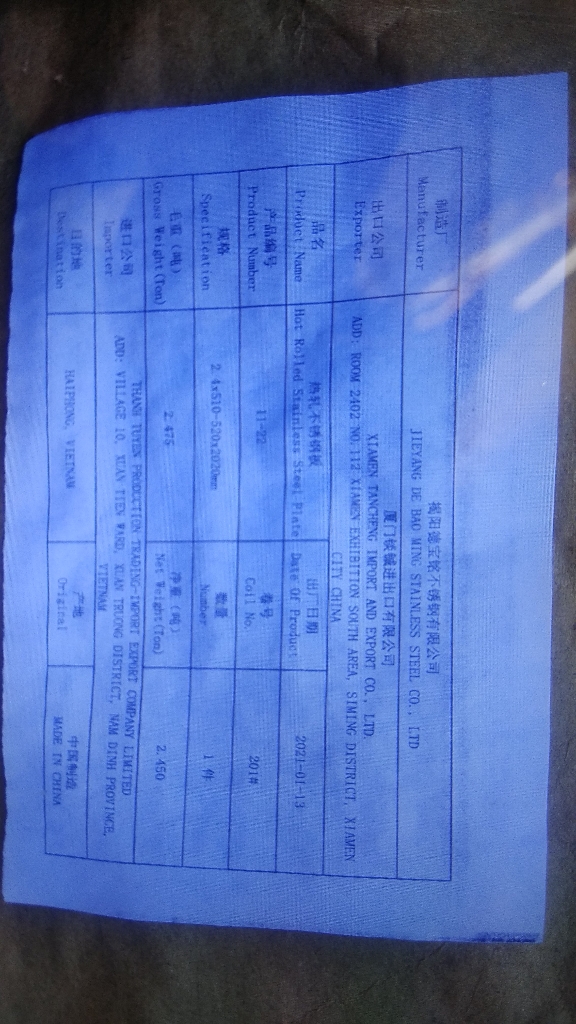 制造厂
Manufacturer
揭阳德宝铭不锈钢有限公司
JIEYANG DE BAO MING STAINLESS STEEL CO., LTD
出口公司
Exporter
厦门 进出口有限公司
XIAMEN TANCHENG IMPORT AND EXPORT CO., LTD.
ADD: ROOM 2402 NO.112 XIAMEN EXHIBITION SOUTH AREA, SIMING DISTRICT, XIAMEN
CITY CHINA
品名
Product Name
热轧不锈钢板
Hot Rolled Stainless Steel Plate
出厂日期
Date Of Product
2021-01-13
产品编号
Product Number
11-22
卷号
Coil No.
201#
规格
Specification
2.4x510-520x2020mm
数量
Number
1 件
毛重(吨)
Gross Weight(Ton)
2.475
净重(吨)
Net Weight(Ton)
2.450
进口公司
Importer
THANH TUYEN PRODUCTION TRADING-IMPORT EXPORT COMPANY LIMITED
ADD: VILLAGE 10, XUAN TIEN WARD, XUAN TRUONG DISTRICT, NAM DINH PROVINCE,
VIETNAM
目的地
Destination
HAIPHONG, VIETNAM
产地
Original
中国制造
MADE IN CHINA